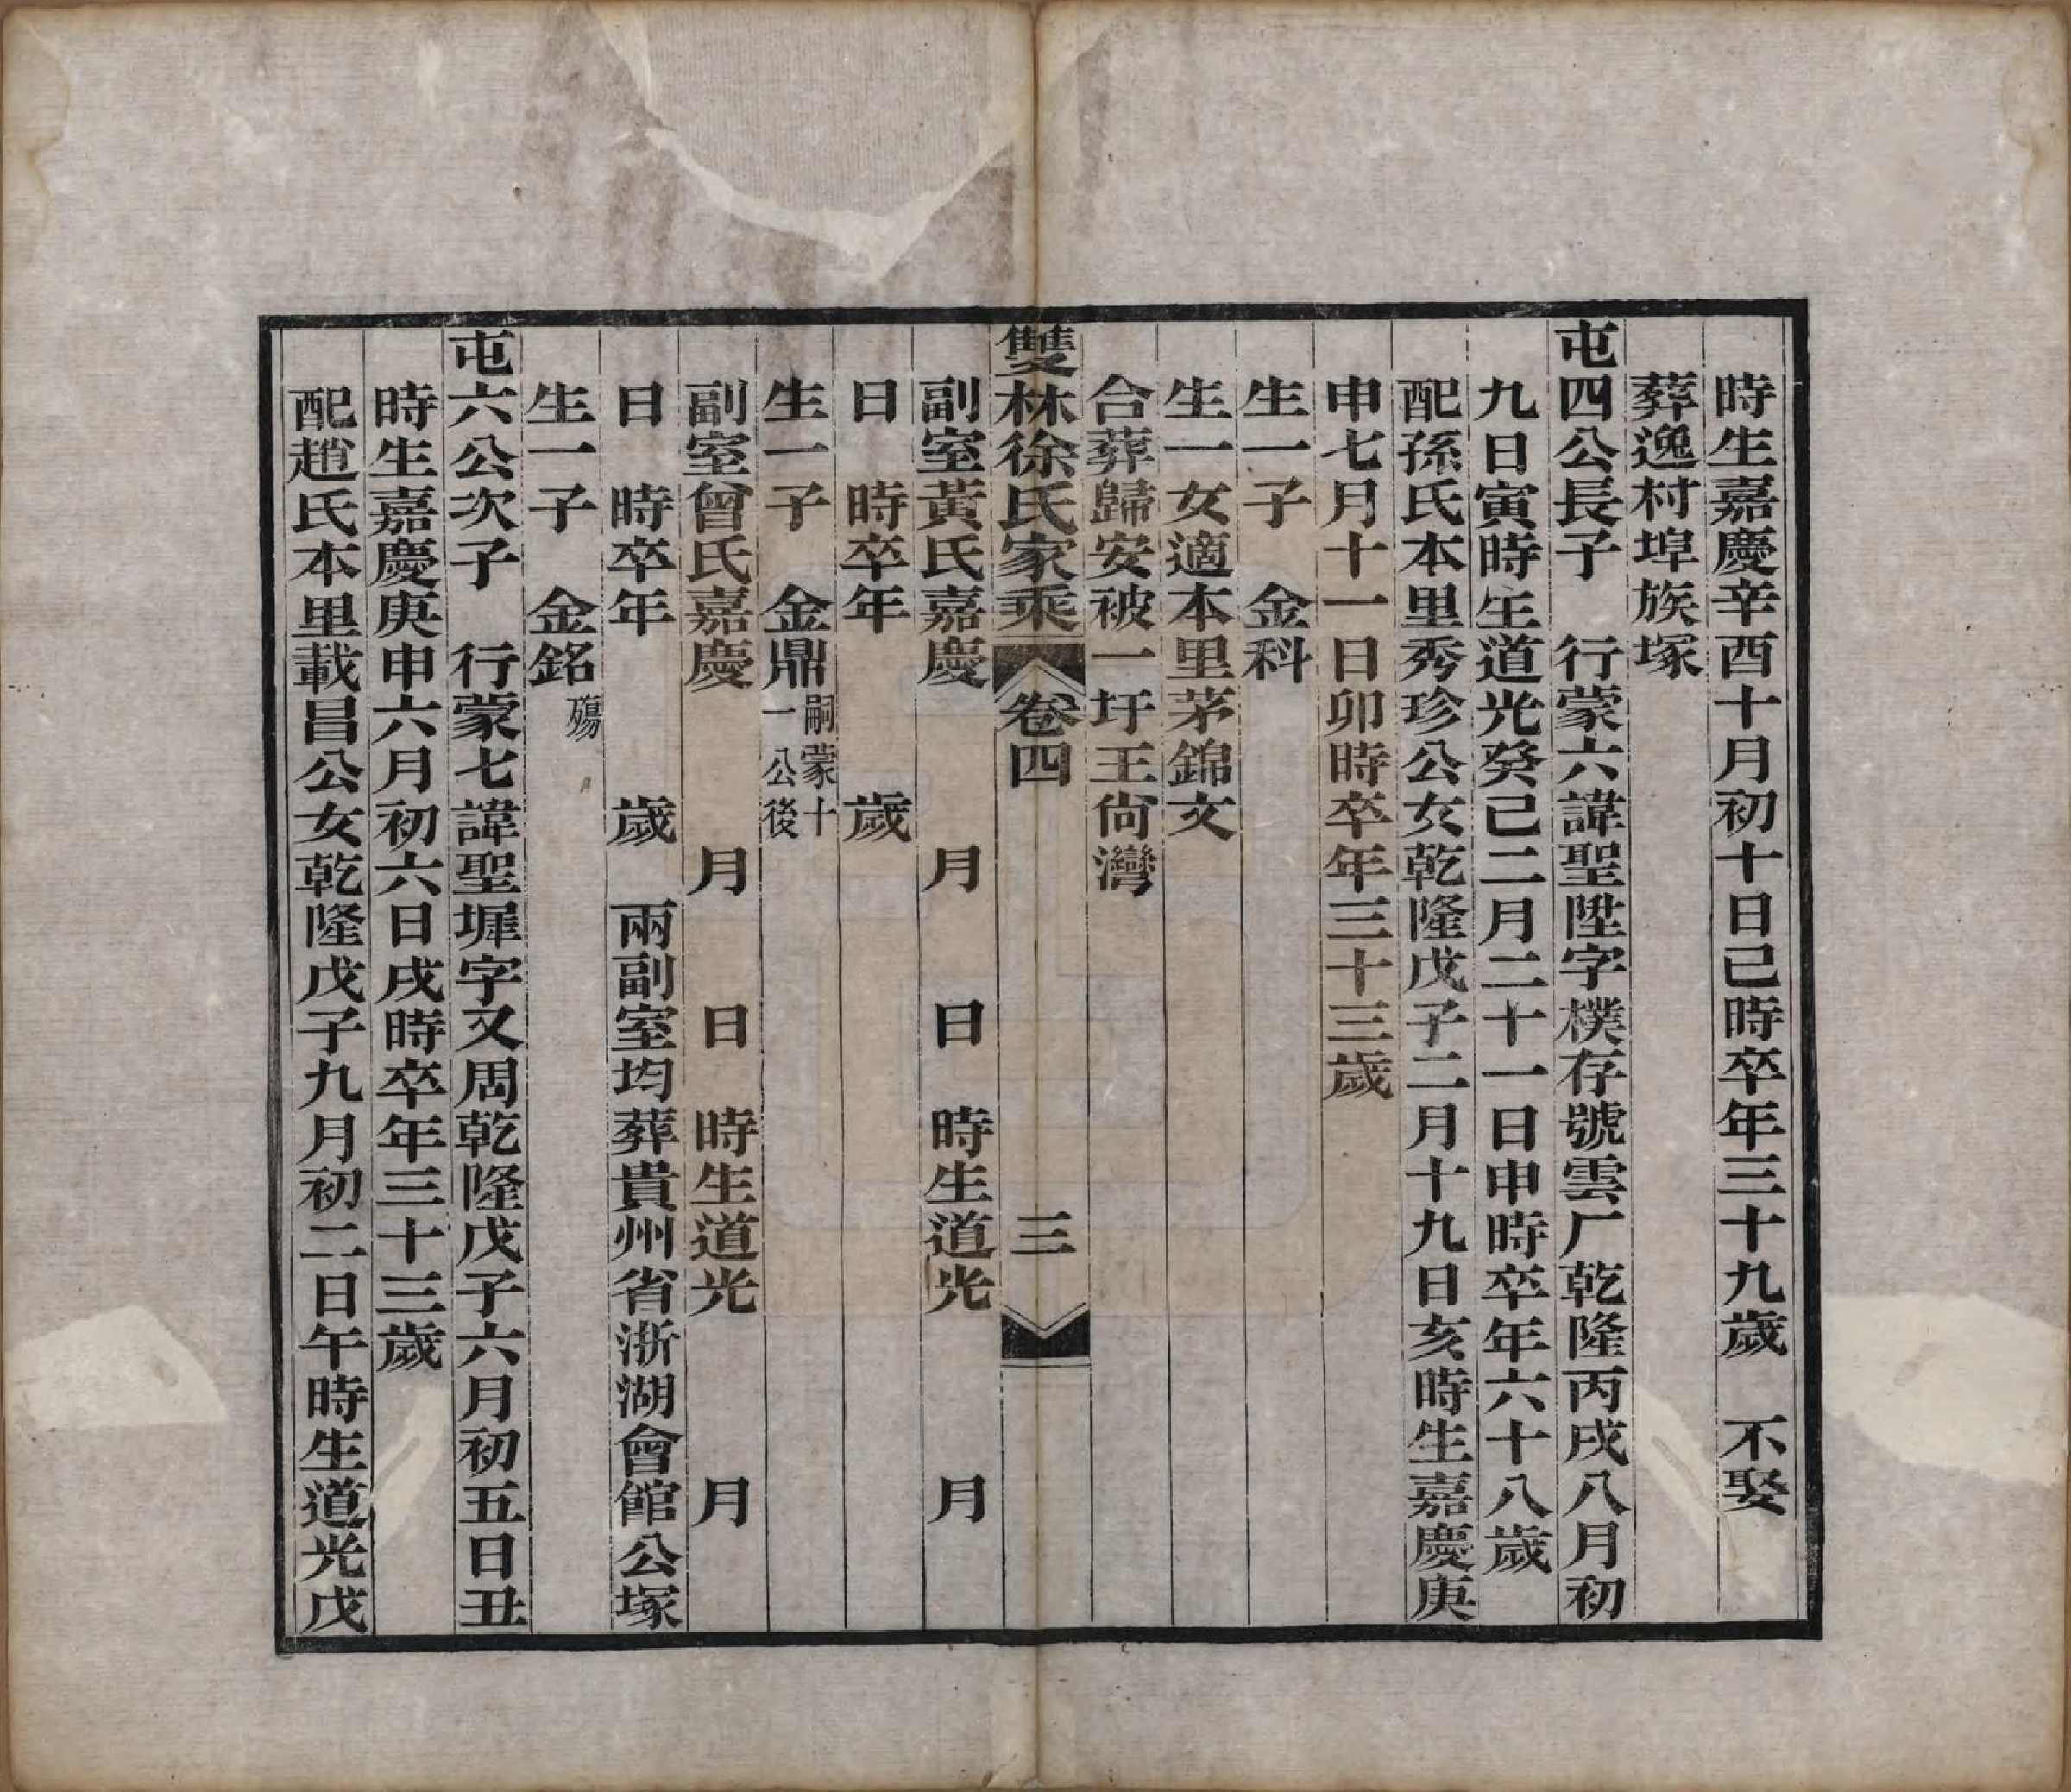 時生嘉慶辛酉十月初十日己時卒年三十九歲　不娶
葬逸村埠族塚
屯四公長子　行蒙六諱聖陞字樸存號雲厂乾隆丙戌八月初
九日寅時生道光癸己二月二十一日申時卒年六十八歲
配孫氏本里秀珍公女乾隆戊子二月十九日亥時生嘉慶庚
申七月十一日卯時卒年三十三歲
生一子　金科
生一女適本里茅錦文
合葬歸安被一圩王尙灣
雙林徐氏家乘　卷四　三
副室黃氏嘉慶　月　日　時生道光　月
日　時卒年　歲
生一子　金鼎嗣蒙十一公後
副室曾氏嘉慶　月　日　時生道光　月
日　時卒年　歲　兩副室均葬貴州省浙湖會館公塚
生一子　金銘殤
屯六公次子　行蒙七諱聖墀字又周乾隆戊子六月初五日丑
時生嘉慶庚申六月初六日戌時卒年三十三歲
配趙氏本里載昌公女乾隆戊子九月初二日午時生道光戊